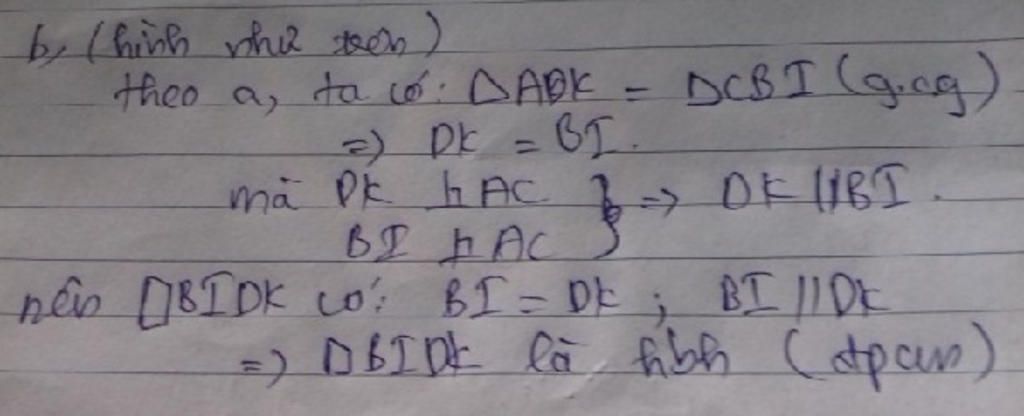 b, (hình như trên)
theo a, ta có: ΔADK = ΔCBI (g.cg)
=> DK = BI.
mà DK ⊥ AC } => DK // BI.
BI ⊥ AC
nên □BIDK có: BI = DK ; BI // DK
=> □BIDK là hbh (đpcm)